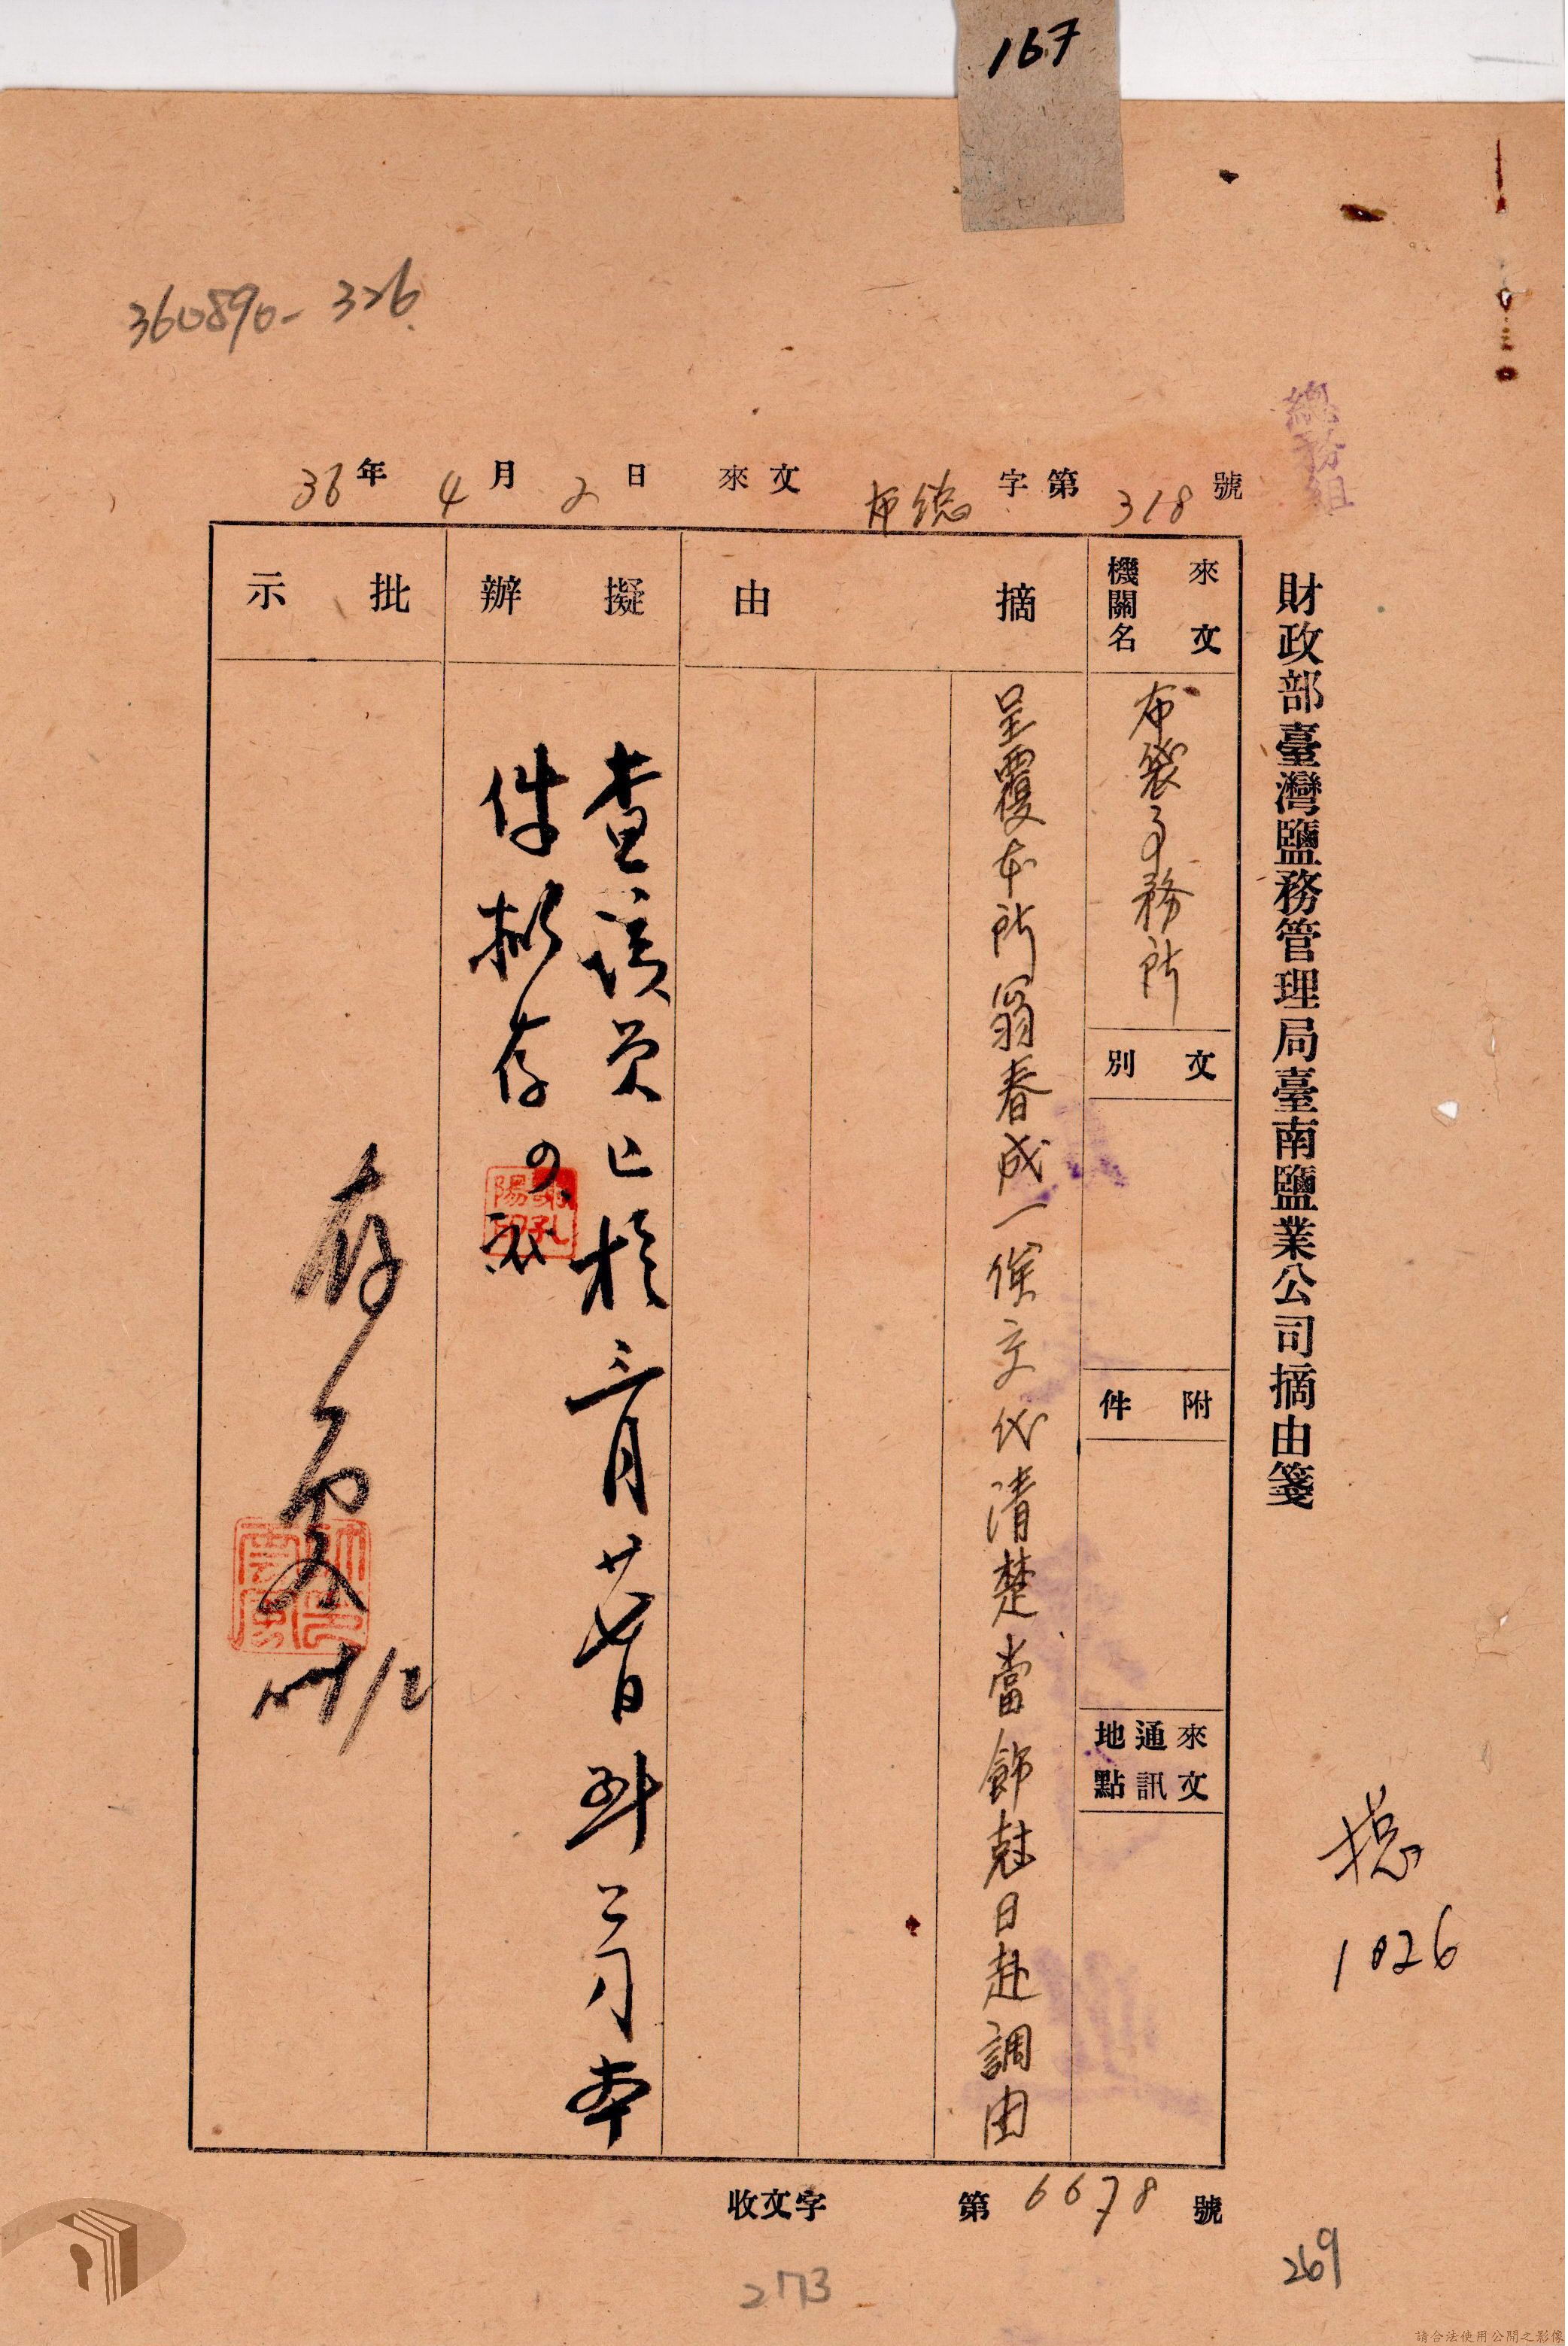 167
360890-326
總務組
財政部臺灣鹽務管理局臺南鹽業公司摘由箋
36年4月2日來文布總字第318號
來文機關名
布袋事務所
文別
附件
來文通訊地點
摘由
呈覆本所翁春成一俟交代清楚當飭尅日赴調由
擬辦
查該員已於三月廿八日到公司本
件擬存 四、二
批示
存
收文字第6678號
總
1026
269
2773
請合法使用公開之影像